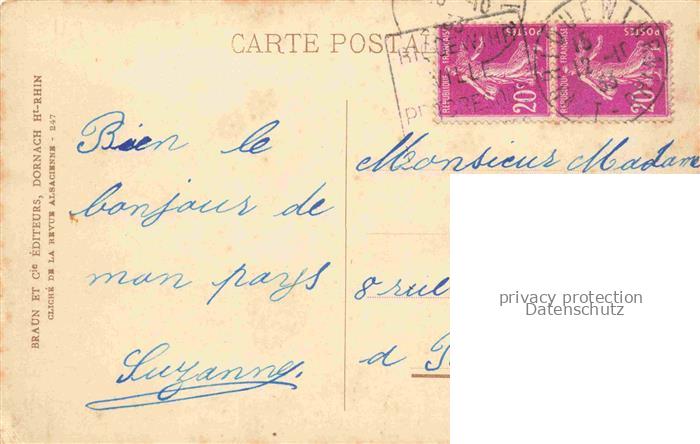 CARTE POSTA
RÉPUBLIQUE FRANÇAISE
POSTES
20c
RÉPUBLIQUE FRANÇAISE
POSTES
20c
BRAUN ET Cie ÉDITEURS, DORNACH Ht-RHIN
CLICHÉ DE LA REVUE ALSACIENNE - 247
Bien le
bonjour de
mon pays
Suzanne.
Monsieur Madame
8 rue
à
privacy protection
Datenschutz